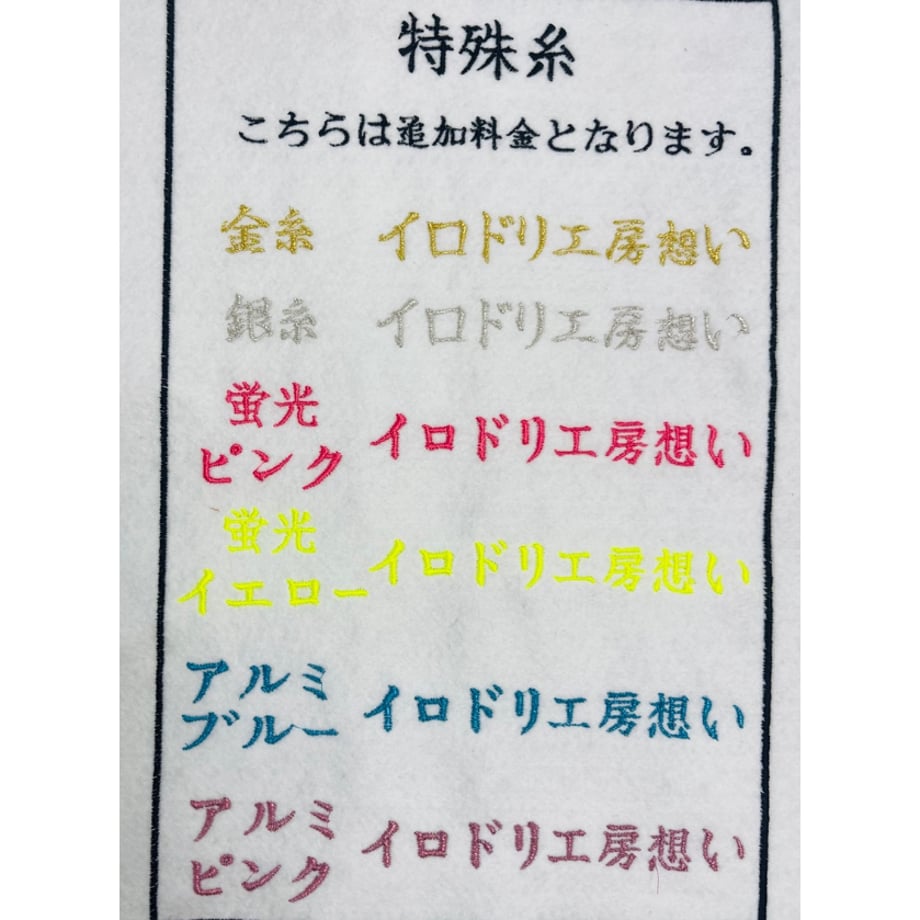 特殊糸
こちらは追加料金となります。
金糸 イロドリ工房想い
銀糸 イロドリ工房想い
蛍光
ピンク イロドリ工房想い
蛍光
イエロー イロドリ工房想い
アルミ
ブルー イロドリ工房想い
アルミ
ピンク イロドリ工房想い